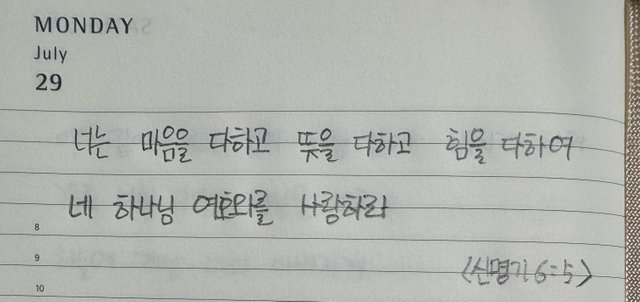 MONDAY
July
29
너는 마음을 다하고 뜻을 다하고 힘을 다하여
네 하나님 여호와를 사랑하라
8
9
<신명기 6:5>
10